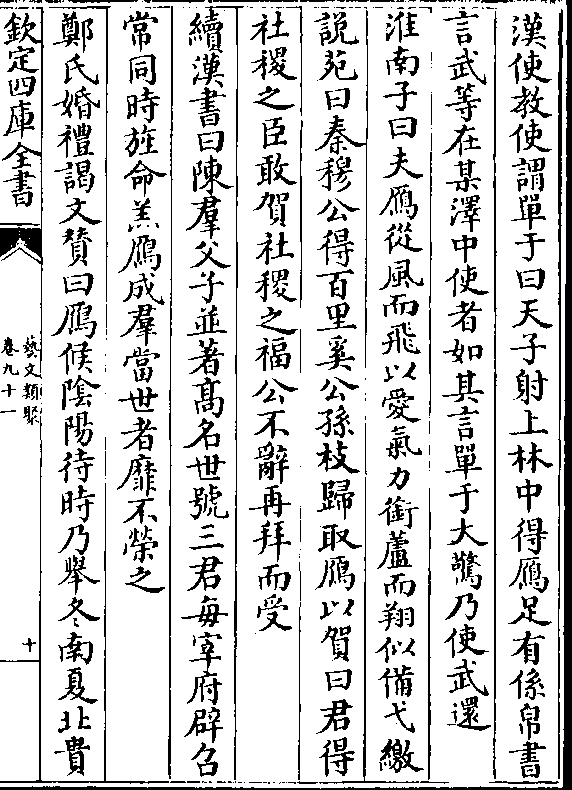 漢使教使謂單于曰天子射上林中得鴈足有係帛書
言武等在某澤中使者如其言單于大驚乃使武還
淮南子曰夫鴈從風而飛以愛氣力銜蘆而翔似備弋繳
說苑曰秦穆公得百里奚公孫枝歸取鴈以賀曰君得
社稷之臣敢賀社稷之福公不辭再拜而受
續漢書曰陳羣父子並著髙名世號三君每宰府辟召
常同時旌命羔鴈成羣當世者靡不榮之
鄭氏婚禮謁文贊曰鴈候隂陽待時乃舉冬南夏北貴
欽定四庫全書
藝文類聚
卷九十一
十